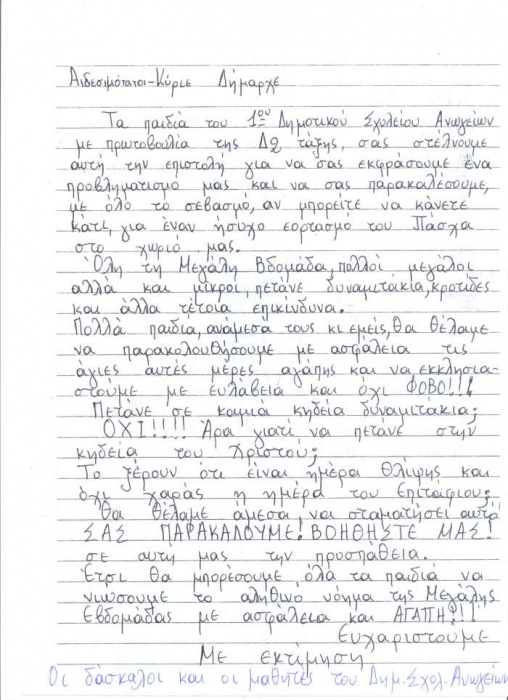 Αιδεσιμότατοι-Κύριε Δήμαρχε
Τα παιδιά του 1ου Δημοτικού Σχολείου Ανωγείων
με πρωτοβουλία της Δ2 τάξης, σας στέλνουμε
αυτή την επιστολή για να σας εκφράσουμε ένα
προβληματισμό μας και να σας παρακαλέσουμε,
με όλο το σεβασμό, αν μπορείτε να κάνετε
κάτι, για έναν ήσυχο εορτασμό του Πάσχα
στο χωριό μας.
Όλη τη Μεγάλη Βδομάδα, πολλοί μεγάλοι
αλλά και μικροί, πετάνε δυναμιτάκια, κροτίδες
και άλλα τέτοια επικίνδυνα.
Πολλά παιδια, ανάμεσα τους κι εμείς, θα θέλαμε
να παρακολουθήσουμε με ασφάλεια τις
άγιες αυτές μέρες αγάπης και να εκκλησια-
στούμε με ευλάβεια και όχι ΦΟΒΟ!!!
Πετάνε σε καμια κηδεία δυναμιτάκια;
ΟΧΙ!!!!! Άρα γιατί να πετάνε στην
κηδεία του Χριστού;
Το ξέρουν ότι είναι ημέρα θλίψης και
όχι χαράς η ημέρα του Επιταφιου;
Θα θέλαμε άμεσα, να σταματήσει αυτό
ΣΑΣ ΠΑΡΑΚΑΛΟΥΜΕ! ΒΟΗΘΗΣΤΕ ΜΑΣ!
σε αυτη μας την προσπάθεια.
Έτσι θα μπορέσουμε, όλα τα παιδιά να
νιωσουμε το αληθινο νόημα της Μεγάλης
Εβδομάδας με ασφάλεια και ΑΓΑΠΗ!!!
Ευχαριστούμε
Με εκτίμηση
Οι δάσκαλοι και οι μαθητες του Δημ. Σχολ. Ανωγείων